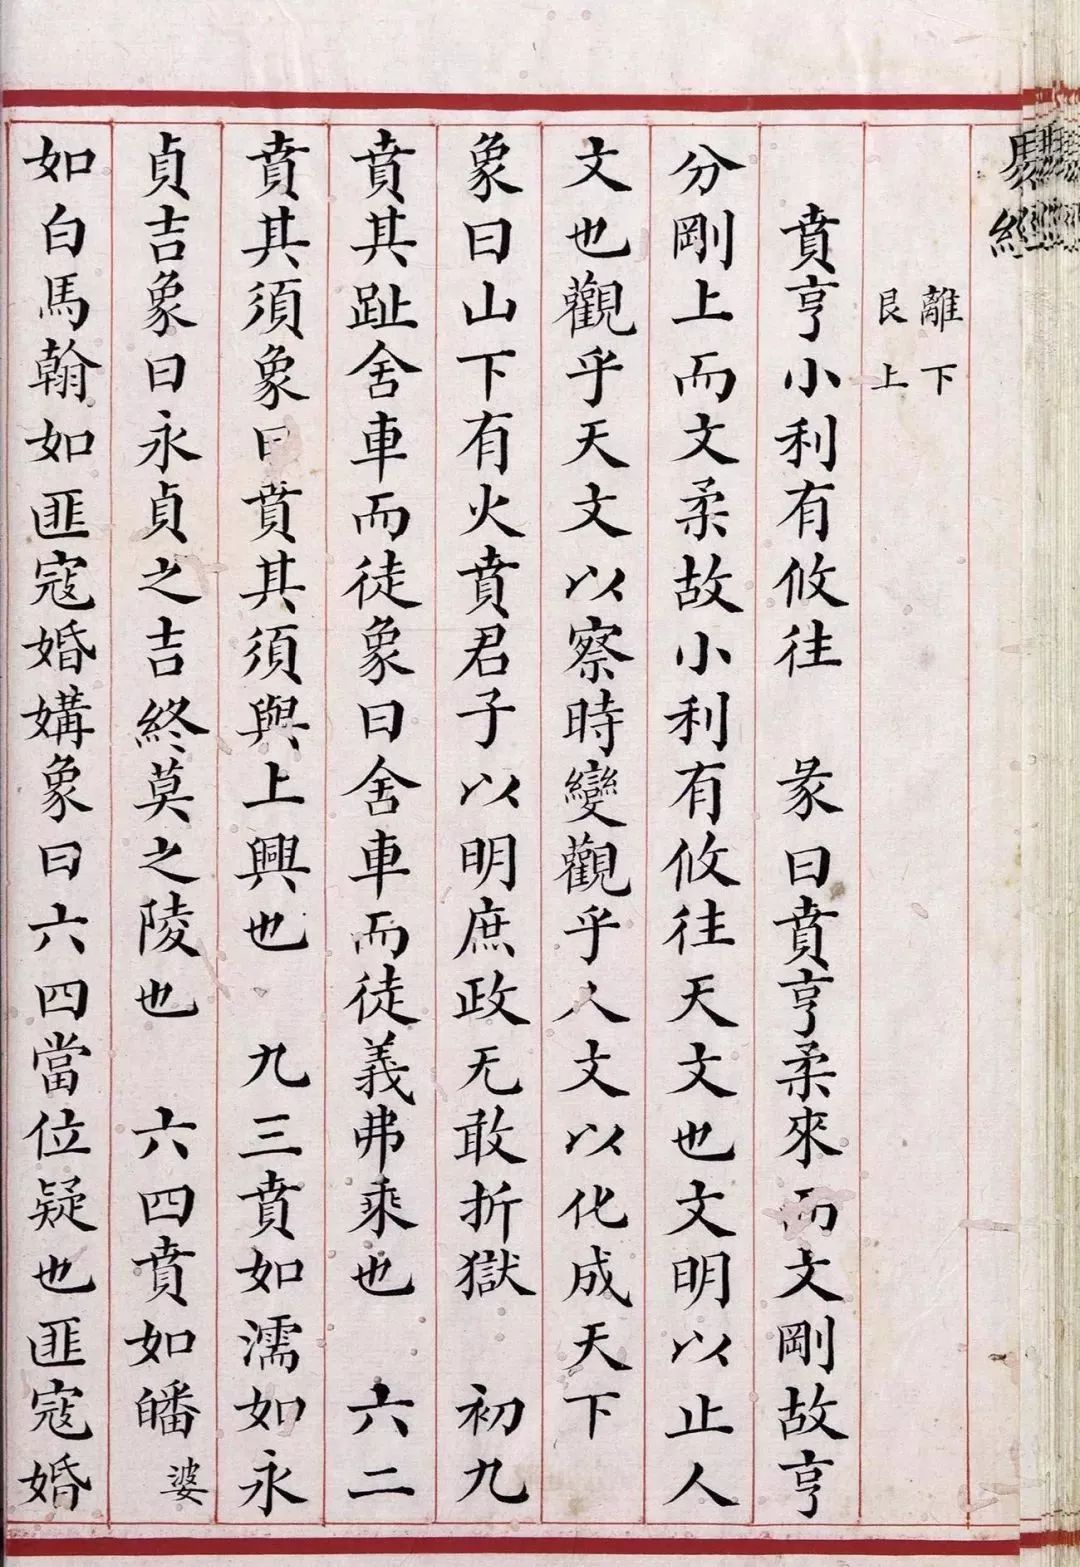 易經
離下
艮上
賁亨小利有攸往　彖曰賁亨柔來而文剛故亨
分剛上而文柔故小利有攸往天文也文明以止人
文也觀乎天文以察時變觀乎人文以化成天下
象曰山下有火賁君子以明庶政无敢折獄　初九
賁其趾舍車而徒象曰舍車而徒義弗乘也　六二
賁其須象曰賁其須與上興也　九三賁如濡如永
貞吉象曰永貞之吉終莫之陵也　六四賁如皤婆
如白馬翰如匪寇婚媾象曰六四當位疑也匪寇婚